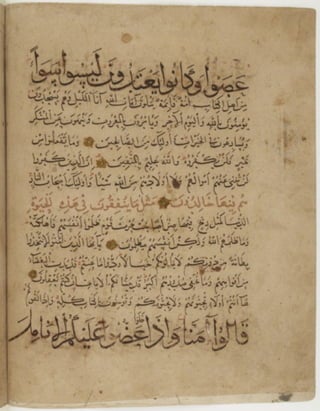 عصوا وكانوا يعتدون ليسوا سواء
من اهل الكتاب امة قائمة يتلون آيات الله آناء الليل وهم يسجدون
يؤمنون بالله واليوم الآخر ويأمرون بالمعروف وينهون عن المنكر
ويسارعون في الخيرات وأولئك من الصالحين وما يفعلوا من
خير فلن يكفروه والله عليم بالمتقين إن الذين كفروا
لن تغني عنهم أموالهم ولا أولادهم من الله شيئا وأولئك أصحاب النار
هم فيها خالدون مثل ما ينفقون في هذه الحيوة
الدنيا كمثل ريح فيها صر أصابت حرث قوم ظلموا أنفسهم فأهلكته
وما ظلمهم الله ولكن أنفسهم يظلمون يا أيها الذين آمنوا لا تتخذوا
بطانة من دونكم لا يألونكم خبالا ودوا ما عنتم قد بدت البغضاء
من أفواههم وما تخفي صدورهم أكبر قد بينا لكم الآيات إن كنتم تعقلون
ها أنتم أولاء تحبونهم ولا يحبونكم وتؤمنون بالكتاب كله وإذا لقوكم
قالوا آمنا وإذا خلوا عضوا عليكم الأنامل